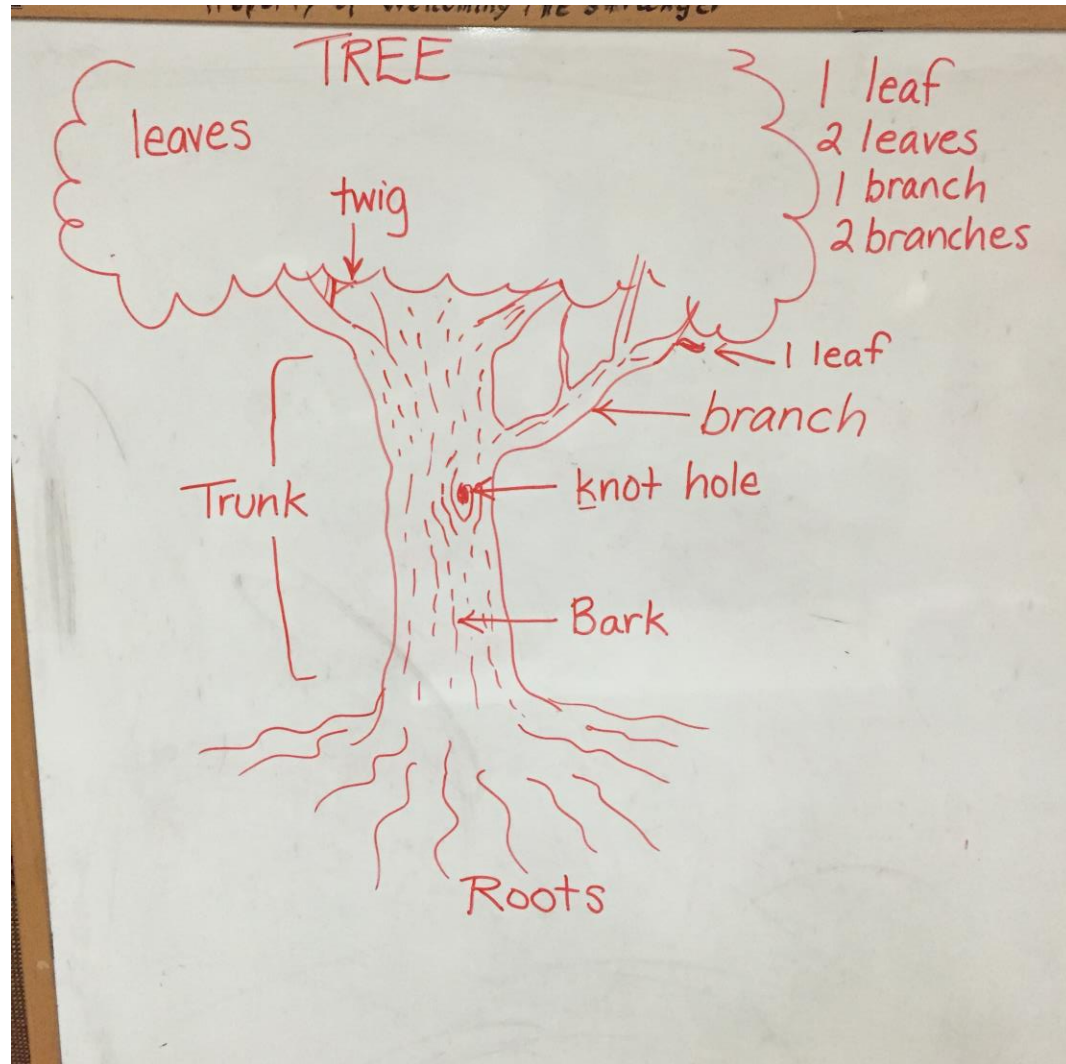 Property of Welcoming The Stranger
TREE
leaves
twig
1 leaf
2 leaves
1 branch
2 branches
1 leaf
branch
Trunk
knot hole
Bark
Roots